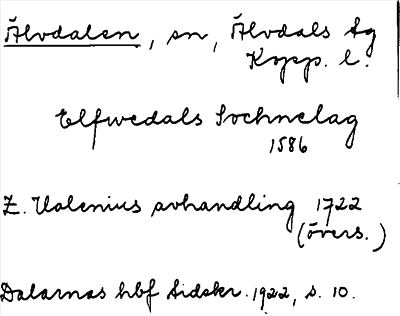 Älvdalen, sn, Älvdals tg
Kopp. l.
Elfwedals Sochnelag
1586
Z. Ualenius avhandling 1722
(övers.)
Dalarnas hbf tidskr. 1922, s. 10.